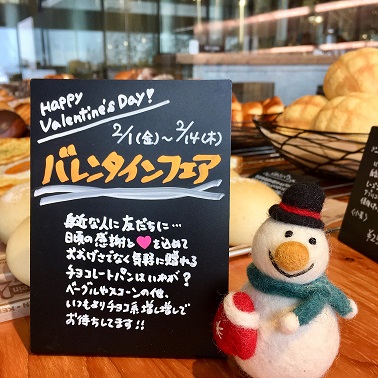 Happy
Valentine's Day!
2/1(金)～2/14(木)
バレンタインフェア
身近な人に友だちに…
日頃の感謝と♥を込めて
大おげさでなく気軽に贈れる
チョコレートパンはいかが?
ベーグルやスコーンの他、
いつもよりチョコ系増し増しで
お待ちしてます!!